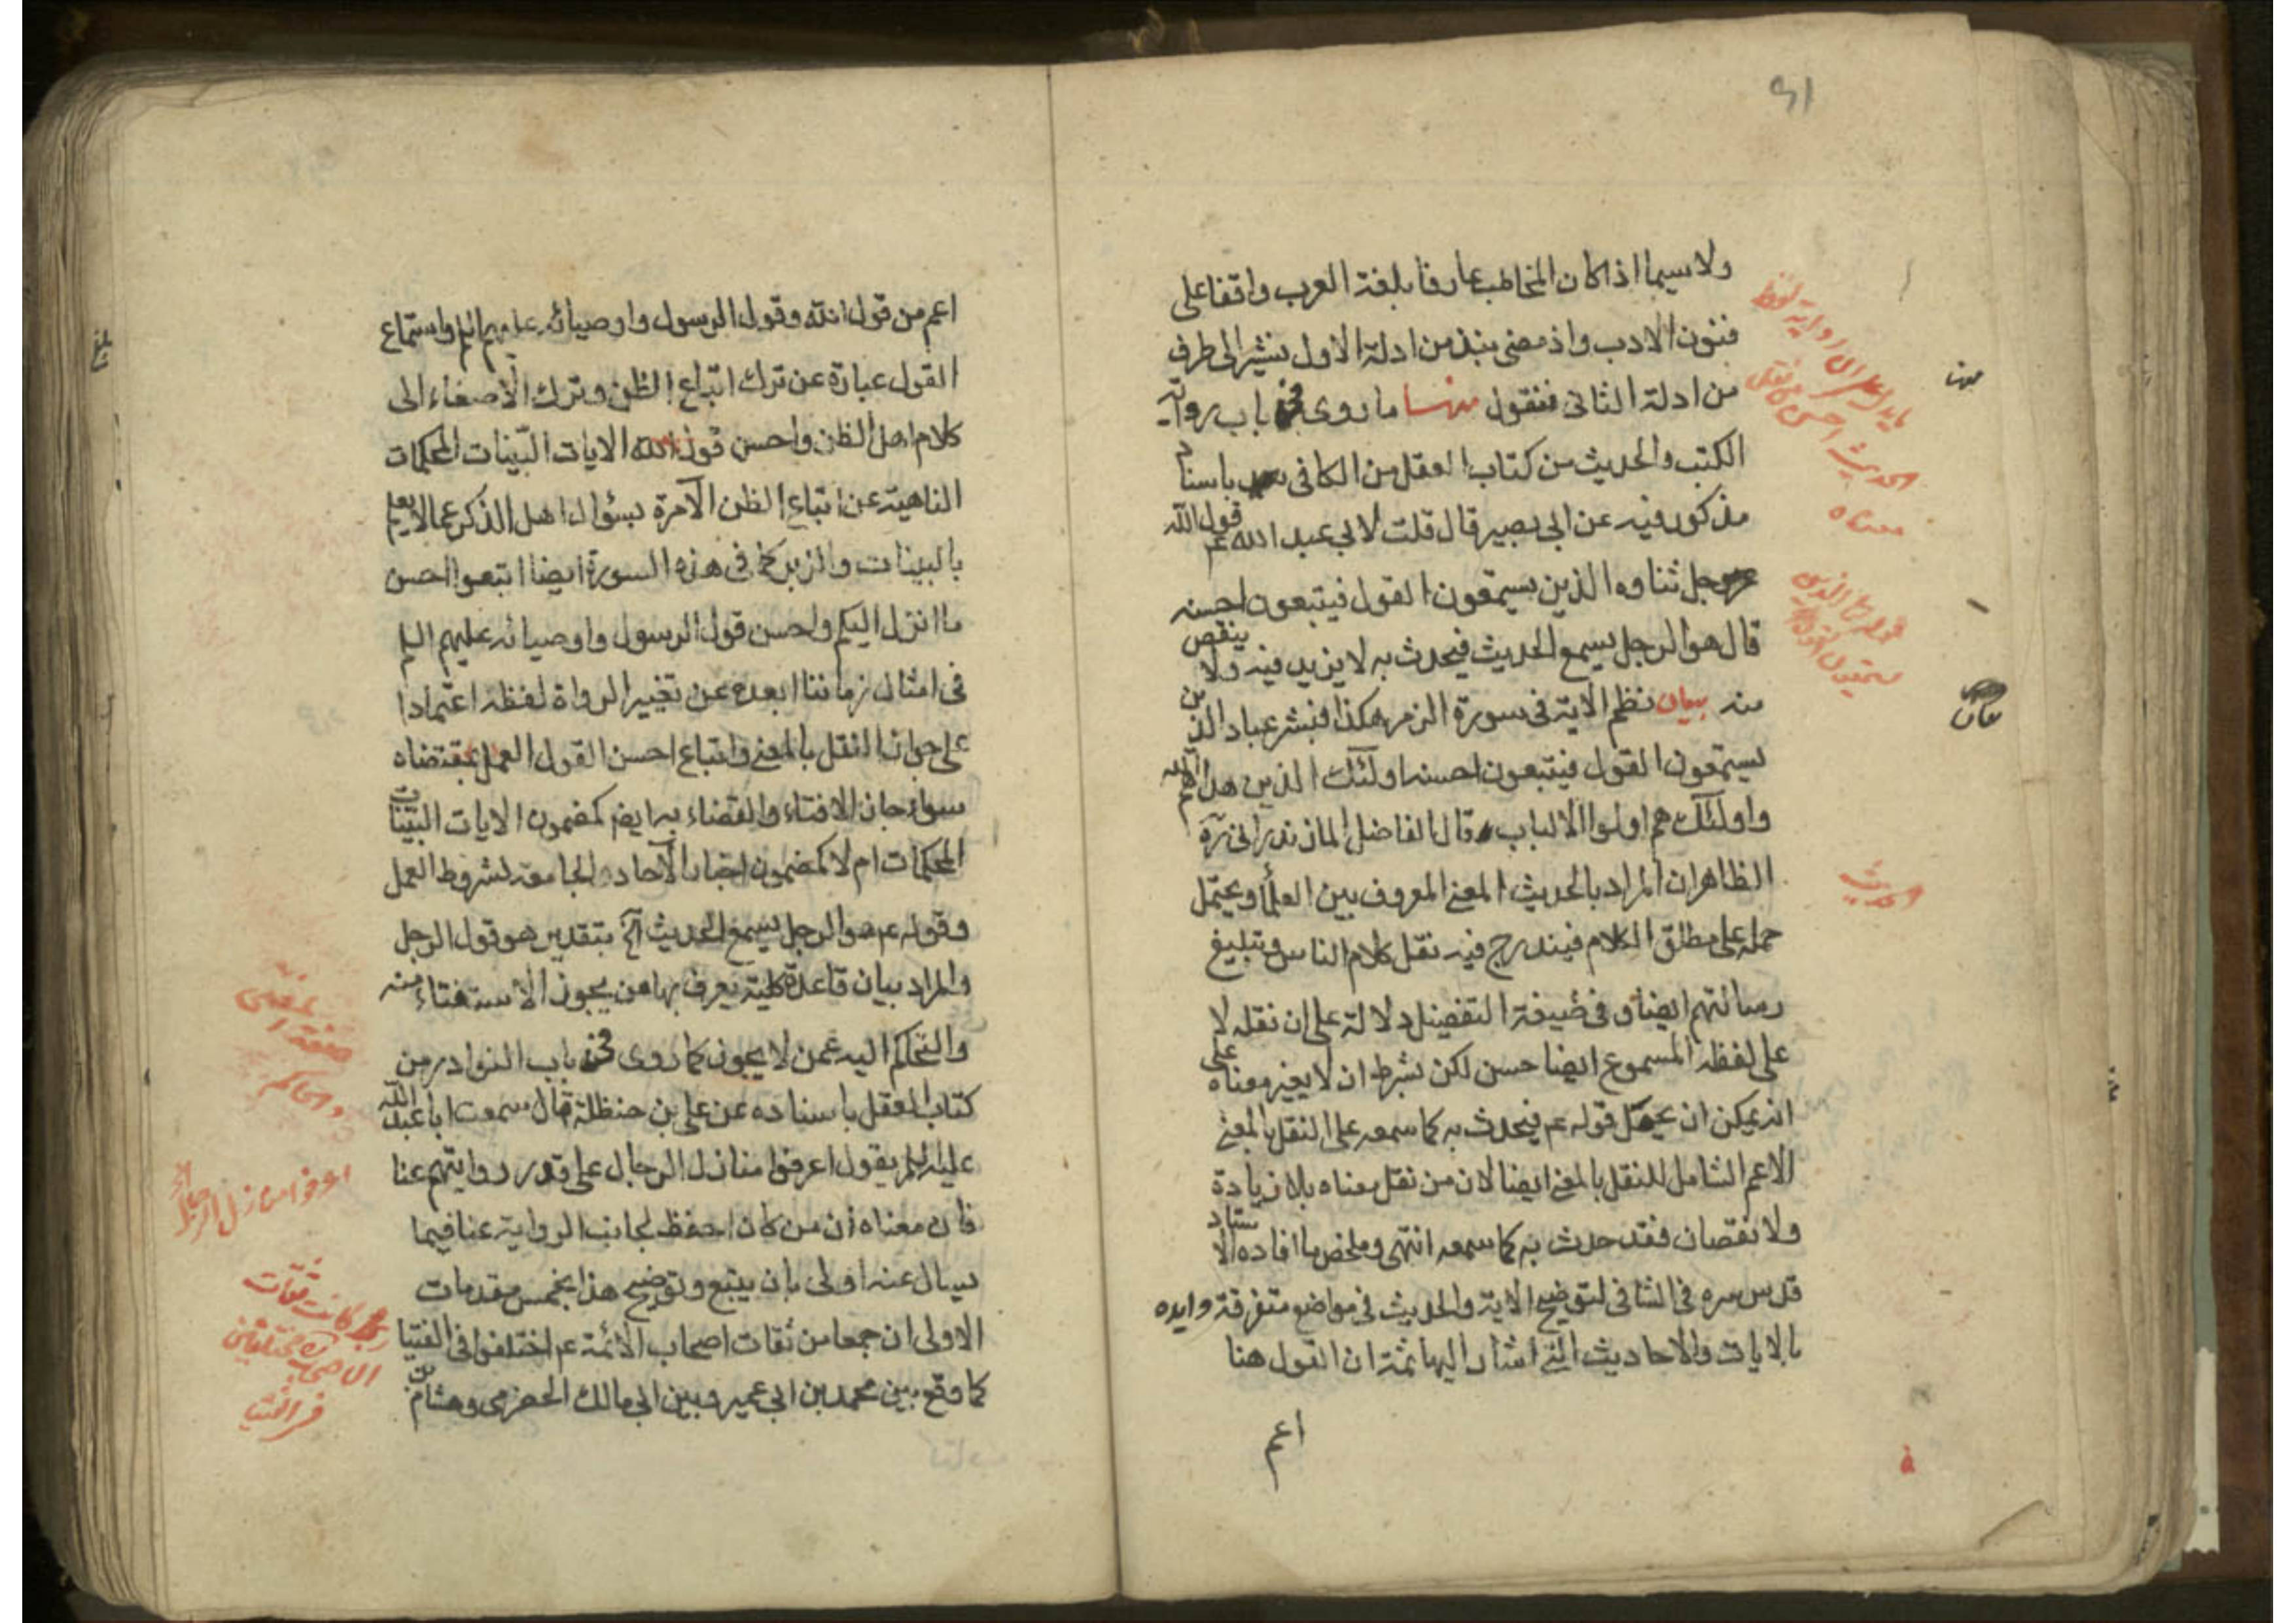 ولا سيما اذا كان المخاطب عارفا بلغة العرب واقفا على
فنون الادب واذ مضى نبذ من ادلة الاول نشير الى طرف
من ادلة الثانى فنقول منها ما روى فى باب رواية
الكتب والحديث من كتاب العقل من الكافى باسناد
مذكور فيه عن ابى بصير قال قلت لابى عبد الله عم قول الله
جل ثناوه الذين يستمعون القول فيتبعون احسنه
قال هو الرجل يسمع الحديث فيحدث به لا يزيد فيه ولا ينقص
منه بيان نظم الاية فى سورة الزمر هكذا فبشر عباد الذين
يستمعون القول فيتبعون احسنه اولئك الذين هداهم الله
واولئك هم اولوا الالباب قال الفاضل المازندرانى ره
الظاهر ان المراد بالحديث المعنى المعروف بين العلماء ويحتمل
حمله على مطلق الكلام فيندرج فيه نقل كلام الناس وتبليغ
رسالتهم ايضا وفى صيغة التفضيل دلالة على ان نقله لا
على لفظه المسموع ايضا حسن لكن بشرط ان لا يغير معناه على
انه يمكن ان يحمل قوله عم فيحدث به كما سمعه على النقل بالمعنى
الاعم الشامل للنقل بالمعنى ايضا لان من نقل معناه بلا زيادة
ولا نقصان فقد حدث به كما سمعه انتهى وملخص ما افاده الاستاد
قدس سره فى الشافى لتوضيح الاية والحديث فى مواضع متفرقة وايده
بالايات والاحاديث التى اشار اليها ثمة ان القول هنا
اعم
الحديث
معناه
الحديث
اعم من قول الله وقول الرسول واوصيائه عليهم السلم واستماع
القول عبارة عن ترك اتباع الظن وترك الاصغاء الى
كلام اهل الظن واحسن قول الله الايات البينات المحكمات
الناهية عن اتباع الظن الآمرة بسؤال اهل الذكر عما لا يعلم
بالبينات والزبر كما فى هذه السورة ايضا اتبعوا احسن
ما انزل اليكم واحسن قول الرسول واوصيائه عليهم السلم
فى امثال زماننا ابعده عن تغيير الرواة لفظه اعتمادا
على جواز النقل بالمعنى واتباع احسن القول العمل بمقتضاه
سواء جاز الافتاء والقضاء به ايضا كمضمون الايات البينات
المحكمات ام لا كمضمون اخبار الآحاد الجامعة لشروط العمل
وقوله عم هو الرجل يسمع الحديث آه بتقدير هو قول الرجل
والمراد بيان قاعدة كلية يعرف بها من يجوز الاستفتاء منه
والتحاكم اليه عمن لا يجوز كما روى فى باب النوادر من
كتاب العقل باسناده عن على بن حنظلة قال سمعت ابا عبد الله
عليه السلم يقول اعرفوا منازل الرجال على قدر روايتهم عنا
فان معناه ان من كان احفظ لجانب الرواية عنا فيما
يسال عنه اولى بان يتبع وتوضيح هذا بخمس مقدمات
الاولى ان جمعا من ثقات اصحاب الائمة عم اختلفوا فى الفتيا
كما وقع بين محمد بن ابى عمير وبين ابى مالك الحضرمى وهشام بن
اعرفوا منازل الرجال